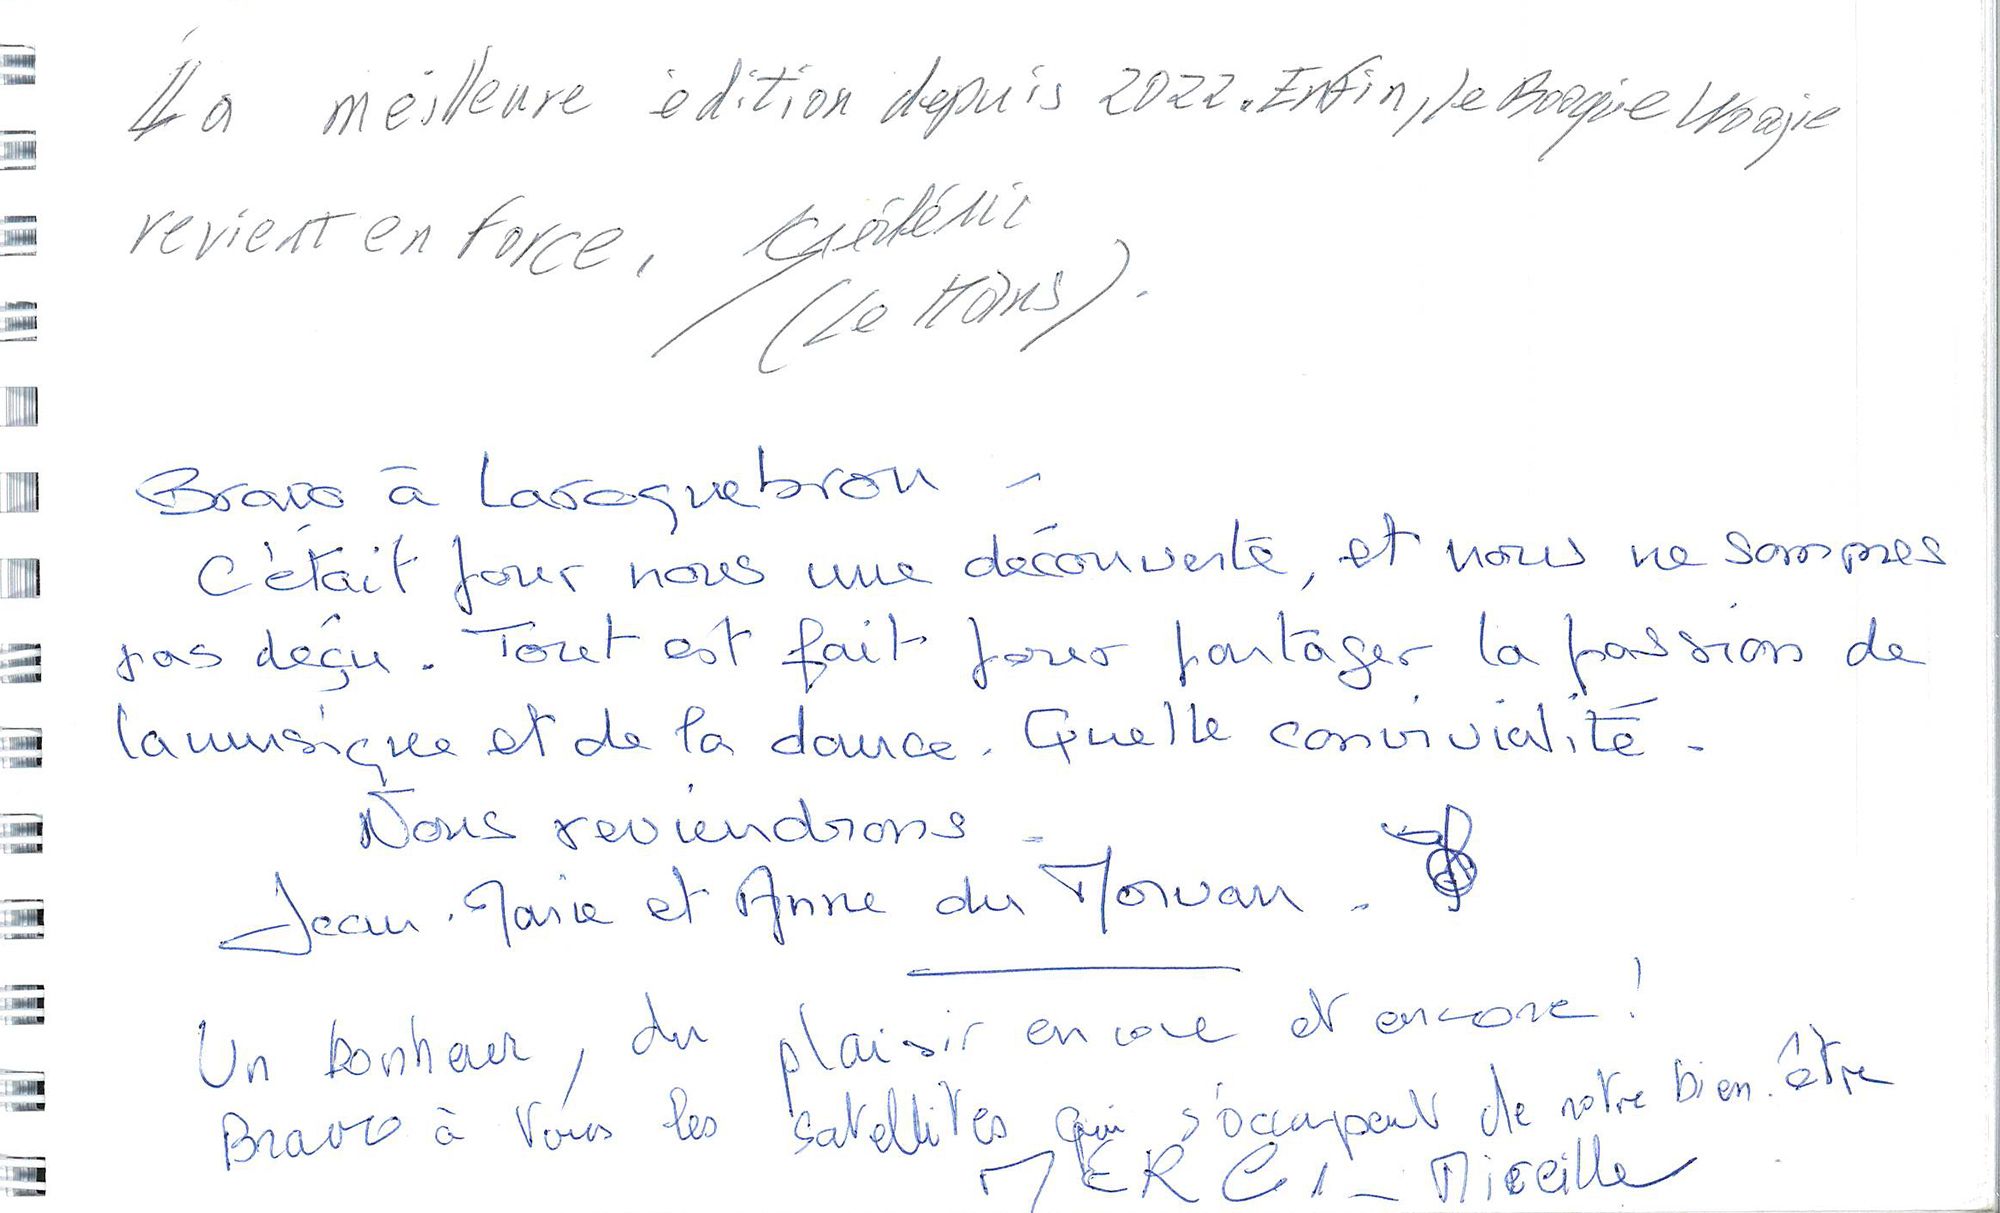 La meilleure édition depuis 2022. Enfin, le Boogie Woogie
revient en force,
(Le Mans).
Bravo à Laroquebrou -
C'était pour nous une découverte, et nous ne sommes
pas déçu. Tout est fait pour partager la passion de
la musique et de la dance. Quelle convivialité -
Nous reviendrons -
Jean-Marie et Anne du Morvan -
Un bonheur, du plaisir encore et encore !
Bravo à tous les satellites qui s'occupent de notre bien-être
MERCI - Mireille